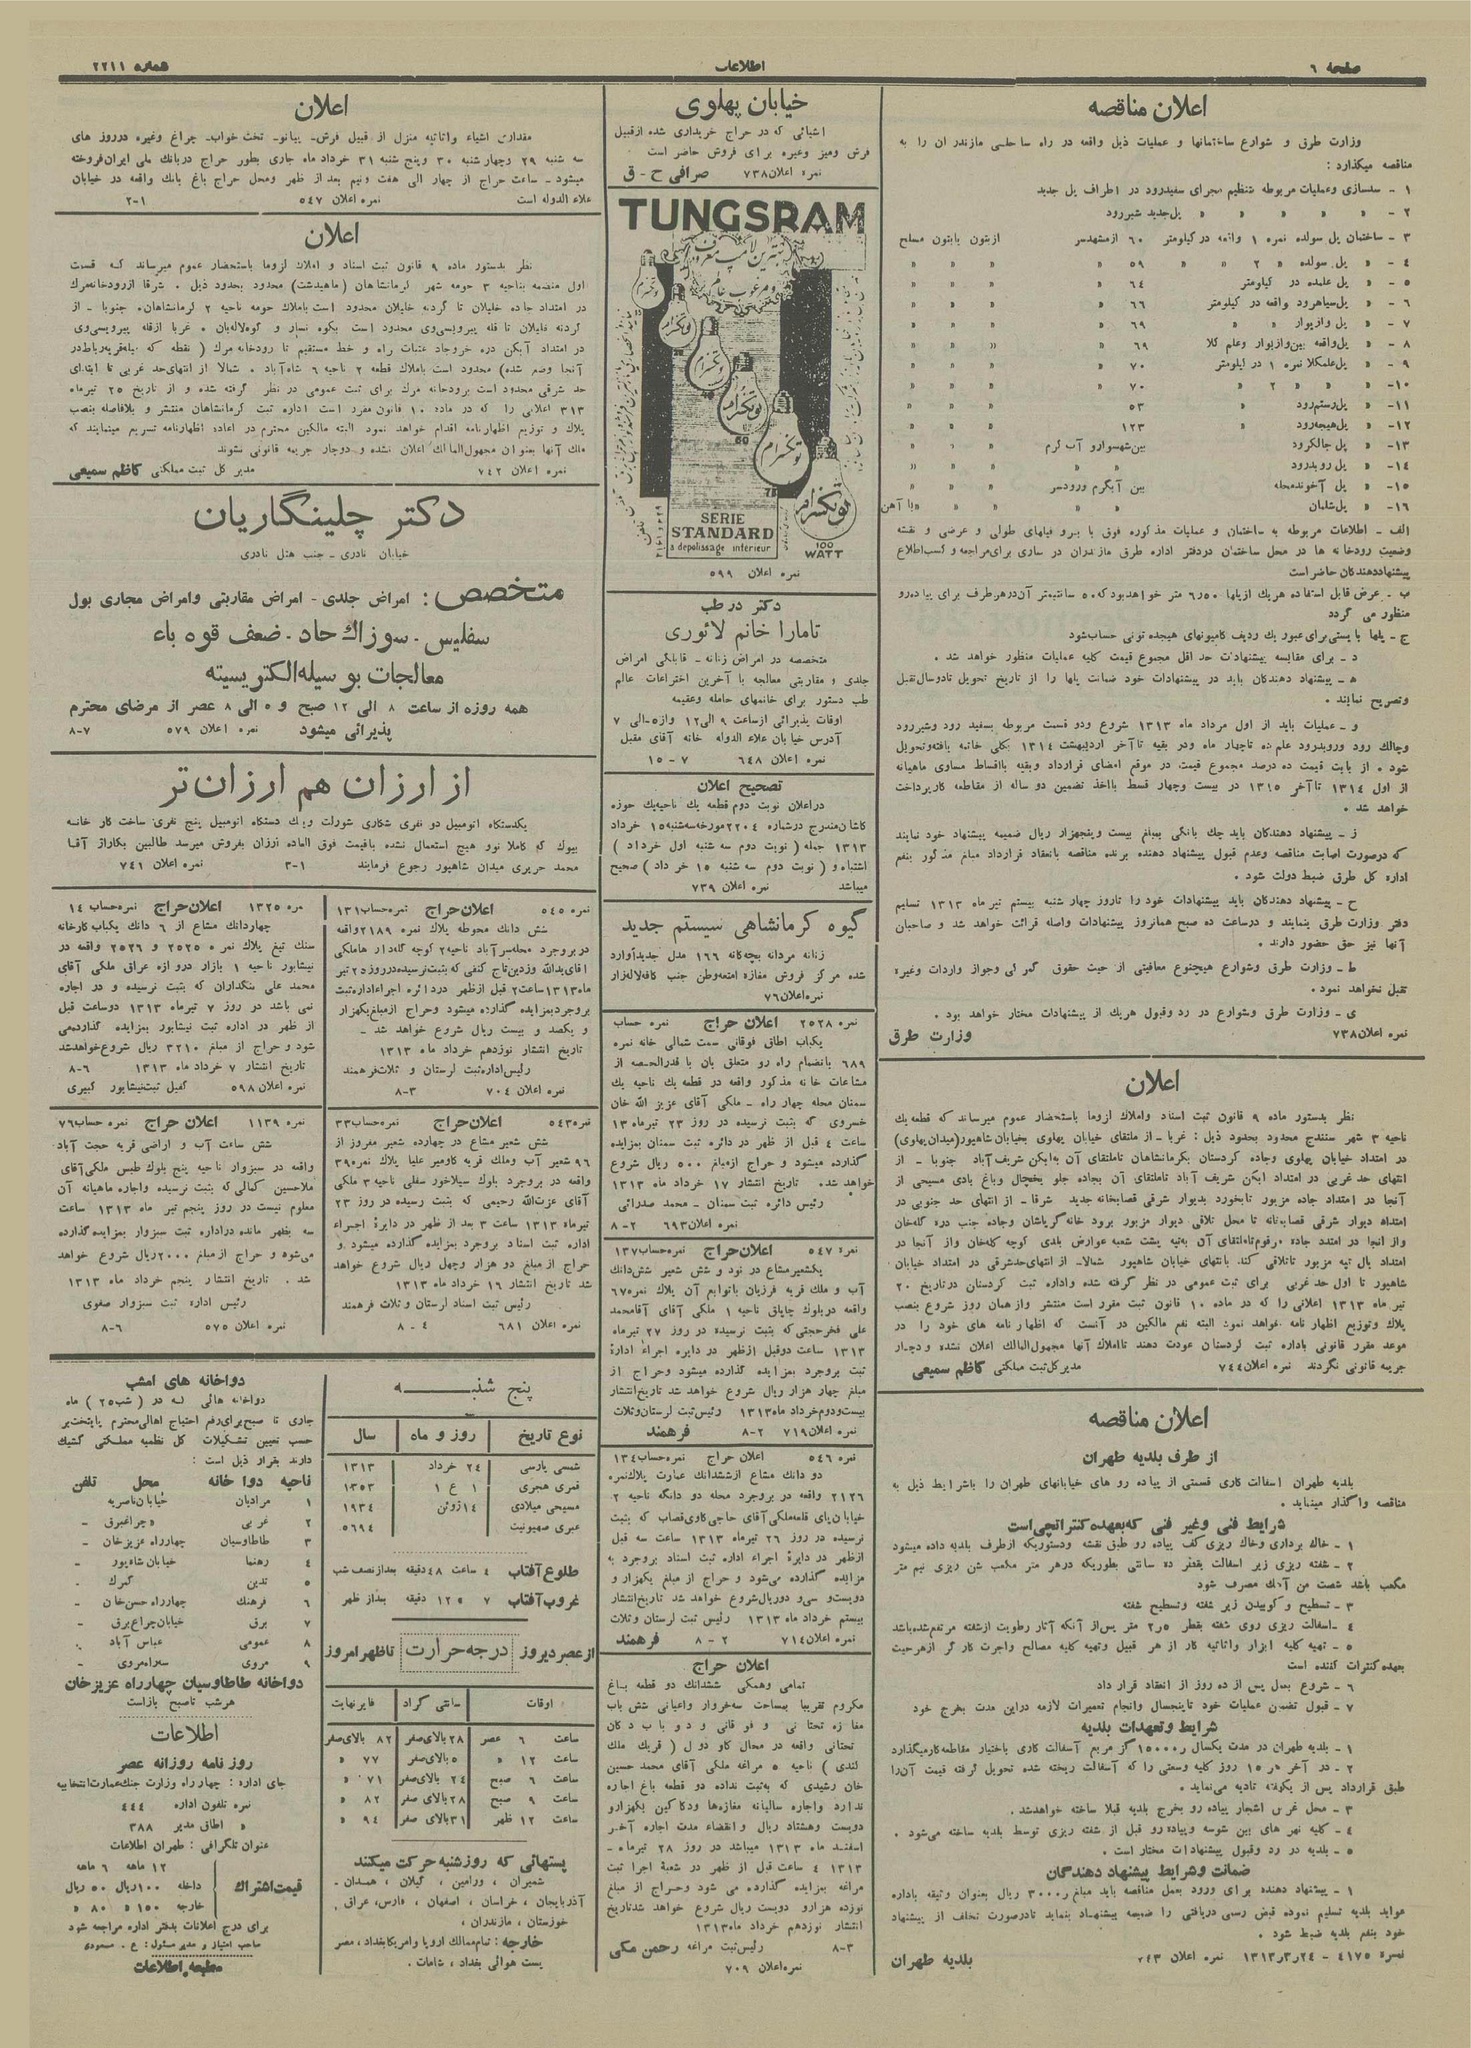 صفحه ٦
اطلاعات
شماره ٢٢١١
اعلان مناقصه
وزارت طرق و شوارع ساختمانها و عملیات ذیل واقعه در راه ساحلی مازندران را به
مناقصه میگذارد :
١ - سدسازی وعملیات مربوطه بتنظیم مجرای سفیدرود در اطراف پل جدید
٢ - » » » » » پل جدید شیررود
٣ - ساختمان پل سولده نمره ١ واقعه در کیلومتر ٦٠ ازمشهدسر ازبتون یابتون مسلح
٤ - » پل سولده » ٢ » » ٥٩ » » » »
٥ - » پل علمده در کیلومتر ٦٤ » » » »
٦ - » پل سیاهرود واقعه در کیلومتر ٦٦ » » » »
٧ - » پل وازیوار » » ٦٩ » » » »
٨ - » پل واقعه بین وازیوار وعلم کلا ٦٩ » » » »
٩ - » پل علمکلا نمره ١ در کیلومتر ٧٠ » » » »
١٠- » » » ٢ » » ٧٠ » » » »
١١- » پل رستم رود » ٥٣ » » » »
١٢- » پل هیجه رود » ١٢٣ » » » »
١٣- » پل چالکرود بین شهسوارو آب گرم » » »
١٤- » پل رودبرود » » » » »
١٥- » پل آخوندمحله بین آبگرم ورودسر » » »
١٦- » پل شلمان » » » » » یا آهن
الف - اطلاعات مربوطه به ساختمان و عملیات مذکوره فوق با پروفیلهای طولی و عرضی و نقشه
وضعیت رودخانه ها در محل ساختمان دردفتر اداره طرق مازندران در ساری برای مراجعه و کسب اطلاع
پیشنهاددهندگان حاضر است
ب - عرض قابل استفاده هریک ازپلها ٦٫٥٠ متر خواهدبود که ٥٠ سانتیمتر آن درهرطرف برای پیاده رو
منظور می گردد
ج - پلها بایستی برای عبور یك ردیف کامیونهای هیجده تونی حساب شود
د - برای مقایسه پیشنهادات حد اقل مجموع قیمت کلیه عملیات منظور خواهد شد .
ه - پیشنهاد دهندگان باید در پیشنهادات خود ضمانت پلها را از تاریخ تحویل تادوسال تقبل
وتصریح نمایند .
و - عملیات باید از اول مرداد ماه ١٣١٣ شروع ودو قسمت مربوطه بسفید رود وشیررود
وچالك رود ورودبرود علمده تاچهار ماه ودر بقیه تاآخر اردیبهشت ١٣١٤ بکلی خاتمه یافته وتحویل
شود . از بابت قیمت ده درصد مجموع قیمت در موقع امضای قرارداد وبقیه بااقساط مساوی ماهیانه
از اول ١٣١٤ تاآخر ١٣١٥ در بیست وچهار قسط بااخذ تضمین دو ساله از مقاطعه کارپرداخت
خواهد شد .
ز - پیشنهاد دهندگان باید چك بانکی بمبلغ بیست وپنجهزار ریال ضمیمه پیشنهاد خود نمایند
که درصورت اصابت مناقصه وعدم قبول پیشنهاد دهنده برنده مناقصه بانعقاد قرارداد مبلغ مذکور بنفع
اداره کل طرق ضبط دولت شود .
ح - پیشنهاد دهندگان باید پیشنهادات خود را تاروز چهار شنبه بیستم تیر ماه ١٣١٣ تسلیم
دفتر وزارت طرق بنمایند و درساعت ده صبح همانروز پیشنهادات واصله قرائت خواهد شد و صاحبان
آنها نیز حق حضور دارند .
ط - وزارت طرق وشوارع هیچنوع معافیتی از حیث حقوق گمرکی وجواز واردات وغیره
تقبل نخواهد نمود .
ی - وزارت طرق وشوارع در رد وقبول هریك از پیشنهادات مختار خواهد بود .
نمره اعلان ٧٣٨ وزارت طرق
اعلان
نظر بدستور ماده ٩ قانون ثبت اسناد واملاك لزوما باستحضار عموم میرساند که قطعه یك
ناحیه ٣ شهر سنندج محدود بحدود ذیل : غربا - از ملتقای خیابان پهلوی بخیابان شاهپور(میدان پهلوی)
در امتداد خیابان پهلوی وجاده کردستان بکرمانشاهان تاملتقای آن به ابکن شریف آباد جنوبا - از
انتهای حد غربی در امتداد ابکن شریف آباد تاملتقای آن بجاده جلو یخچال وباغ بادی مسیحی از
آنجا در امتداد جاده مزبور تابخورد بدیوار شرقی قصابخانه جدید شرقا - از انتهای حد جنوبی در
امتداد دیوار شرقی قصابخانه تا محل تلاقی دیوار مزبور برود خانه گریاشان وجاده جنب دره گله خان
واز آنجا در امتداد جاده مرقوم تاملتقای آن به تپه پشت شعبه عوارض بلدی کوچه کله خان واز آنجا در
امتداد یال تپه مزبور تاتلاقی کند بانتهای خیابان شاهپور شمالا- از انتهای حدشرقی در امتداد خیابان
شاهپور تا اول حد غربی برای ثبت عمومی در نظر گرفته شده واداره ثبت کردستان درتاریخ ٢٠
تیر ماه ١٣١٣ اعلانی را که در ماده ١٠ قانون ثبت مقرر است منتشر واز همان روز شروع بنصب
پلاك وتوزیع اظهار نامه خواهد نمود البته نفع مالکین در آنست که اظهار نامه های خود را در
موعد مقرر قانونی باداره ثبت کردستان عودت دهند تااملاك آنها مجهول المالك اعلان نشده ودچار
جریمه قانونی نگردند نمره اعلان ٧٤٤ مدیر کل ثبت مملکتی کاظم سمیعی
اعلان مناقصه
از طرف بلدیه طهران
بلدیه طهران اسفالت کاری قسمتی از پیاده رو های خیابانهای طهران را باشرایط ذیل به
مناقصه واگذار مینماید .
شرایط فنی وغیر فنی که بعهده کنتراتچی است
١ - خاك برداری وخاك ریزی کف پیاده رو طبق نقشه ودستوریکه ازطرف بلدیه داده میشود
٢ - شفته ریزی زیر اسفالت بقطر ده سانتی بطوریکه درهر متر مکعب شن ریزی نیم متر
مکعب باشد شصت من آهك مصرف شود
٣ - تسطیح و کوبیدن زیر شفته وتسطیح شفته
٤ - اسفالت ریزی روی شفته بقطر ٢٫٥ متر پس از آنکه آثار رطوبت ازشفته مرتفع شده باشد
٥ - تهیه کلیه ابزار واثاثیه کار از هر قبیل وتهیه کلیه مصالح واجرت کار گر ازهرحیث
بعهده کنترات کننده است
٦ - شروع بعمل پس از ده روز از انعقاد قرار داد
٧ - قبول تضمن عملیات خود تاپنجسال وانجام تعمیرات لازمه دراین مدت بخرج خود
شرایط وتعهدات بلدیه
١ - بلدیه طهران در مدت یکسال ١٥٠٠٠ گز مربع آسفالت کاری باختیار مقاطعه کارمیگذارد
٢ - در آخر هر ١٥ روز کلیه وسعتی را که آسفالت ریخته شده تحویل گرفته قیمت آن را
طبق قرارداد پس از یکهفته تادیه می نماید .
٣ - محل غرس اشجار پیاده رو بخرج بلدیه قبلا ساخته خواهدشد .
٤ - کلیه نهر های بین شوسه وپیاده رو قبل از شفته ریزی توسط بلدیه ساخته می شود .
٥ - بلدیه در رد وقبول پیشنهادات مختار است .
ضمانت وشرایط پیشنهاد دهندگان
١ - پیشنهاد دهنده برای ورود بعمل مناقصه باید مبلغ ٣٠٠٠ ریال بعنوان وثیقه باداره
عواید بلدیه تسلیم نموده قبض رسمی دریافتی را ضمیمه پیشنهاد بنماید تادرصورت تخلف از پیشنهاد
خود بنفع بلدیه ضبط شود .
نمره ٤١٧٥ - ٢٤ر٣ر١٣١٣ نمره اعلان ٧٤٣ بلدیه طهران
خیابان پهلوی
اشیائی که در حراج خریداری شده ازقبیل
فرش ومیز وغیره برای فروش حاضر است
نمره اعلان ٧٣٨ صرافی ح - ق
TUNGSRAM
بهترین لامپ معروف
و مرغوب عالم
تونگسرام
تونگسرام
تونگسرام
تونگسرام
تونگسرام
تونگسرام
60
75
SERIE
STANDARD
a depolissage interieur
100
WATT
نمره اعلان ٥٩٩
دکتر در طب
تامارا خانم لائوری
متخصصه در امراض زنانه - قابلگی امراض
جلدی و مقاربتی معالجه با آخرین اختراعات عالم
طب دستور برای خانمهای حامله وعقیمه
اوقات پذیرائی ازساعت ٩ الی ١٢ واز٥-الی ٧
آدرس خیابان علاء الدوله خانه آقای مقبل
نمره اعلان ٦٤٨ ٧ - ١٥
تصحیح اعلان
دراعلان نوبت دوم قطعه یك ناحیه یك حوزه
کاشان مندرج درشماره ٢٢٠٤ مورخه سه شنبه ١٥ خرداد
١٣١٣ جمله ( نوبت دوم سه شنبه اول خرداد )
اشتباه و ( نوبت دوم سه شنبه ١٥ خر داد) صحیح
میباشد نمره اعلان ٧٣٩
گیوه کرمانشاهی سیستم جدید
زنانه مردانه بچه گانه ١٦٦ مدل جدیدآوارد
شده مرکز فروش مغازه امتعه وطن جنب کافه لاله زار
نمره اعلان ٧٦
نمره ٢٥٢٨ اعلان حراج نمره حساب
یکباب اطاق فوقانی سمت شمالی خانه نمره
٦٨٩ بانضمام راه رو متعلق بان با قدرالحصه از
مشاعات خانه مذکور واقعه در قطعه یك ناحیه یك
سمنان محله چهار راه - ملکی آقای عزیز الله خان
خسروی که بثبت نرسیده در روز ٢٣ تیرماه ١٣
ساعت ٤ قبل از ظهر در دائره ثبت سمنان بمزایده
گذارده میشود و حراج ازمبلغ ٥٠٠ ریال شروع
خواهد شد. تاریخ انتشار ١٧ خرداد ماه ١٣١٣
رئیس دائره ثبت سمنان - محمد صدرائی
نمره اعلان ٦٩٣ ٢ - ٨
نمره ٥٤٧ اعلان حراج نمره حساب ١٣٧
یکشعیر مشاع در نود و شش شعیر شش دانك
آب و ملك قریه فرزیان باتوابع آن پلاك نمره ٦٧
واقعه دربلوك چاپلق ناحیه ١ ملکی آقای آقامحمد
علی فخرحجتی که بثبت نرسیده در روز ٢٧ تیرماه
١٣١٣ ساعت دوقبل ازظهر در دایره اجراء ادارهٔ
ثبت بروجرد بمزایده گذارده میشود وحراج از
مبلغ چهار هزار ریال شروع خواهد شد تاریخ انتشار
بیست ودوم خرداد ماه ١٣١٣ رئیس ثبت لرستان وثلاث
نمره اعلان ٧١٩ ٢-٨ فرهمند
نمره ٥٤٦ اعلان حراج نمره حساب ١٣٤
دو دانك مشاع ازششدانك عمارت پلاك نمره
٢١٢٦ واقعه در بروجرد محله دو دانگه ناحیه ٢
خیابان پای قلعه ملکی آقای حاجی کاوی قصاب که بثبت
نرسیده در روز ٢٦ تیرماه ١٣١٣ ساعت سه قبل
ازظهر در دایرهٔ اجراء اداره ثبت اسناد بروجرد به
مزایده گذارده می شود و حراج از مبلغ یکهزار و
دویست و سی و دوریال شروع خواهد شد تاریخ انتشار
بیستم خرداد ماه ١٣١٣ رئیس ثبت لرستان وثلاث
نمره اعلان ٧١٤ ٢ - ٨ فرهمند
اعلان حراج
تمامی وهمگی ششدانك دو قطعه باغ
مکروم تقریبا بمساحت سه خروار واعیانی شش باب
مغازه تحتانی و فوقانی و دو باب دکان
تحتانی واقعه در محال گاو دول ( قریك ملك
کندی ) ناحیه ٥ مراغه ملکی آقای محمد حسین
خان رشیدی که به ثبت نداده دو قطعه باغ اجاره
ندارد واجاره سالیانه مغازه ها ودکاکین یکهزارو
دویست وهشتاد ریال و انقضاء مدت اجاره آخر
اسفند ماه ١٣١٣ میباشد در روز ٢٨ تیرماه -
١٣١٣ ٤ ساعت قبل از ظهر در شعبهٔ اجرا ثبت
مراغه بمزایده گذارده می شود وحراج از مبلغ
نوزده هزارو دویست ریال شروع خواهد شدتاریخ
انتشار نوزدهم خرداد ماه ١٣١٣
٣-٨ رئیس ثبت مراغه رحمن مکی
نمره اعلان ٧٠٩
اعلان
مقداری اشیاء واثاثیه منزل از قبیل فرش- پیانو- تخت خواب- چراغ وغیره درروز های
سه شنبه ٢٩ وچهار شنبه ٣٠ وپنج شنبه ٣١ خرداد ماه جاری بطور حراج دربانك ملی ایران فروخته
میشود - ساعت حراج از چهار الی هفت ونیم بعد از ظهر ومحل حراج باغ بانك واقعه در خیابان
علاء الدوله است نمره اعلان ٥٤٧ ١-٢
اعلان
نظر بدستور ماده ٩ قانون ثبت اسناد و املاك لزوما باستحضار عموم میرساند که قسمت
اول منضمه بناحیه ٣ حومه شهر کرمانشاهان (ماهیدشت) محدود بحدود ذیل . شرقا ازرودخانه مرك
در امتداد جاده خلیلان تا گردنه خلیلان محدود است باملاك حومه ناحیه ٢ کرمانشاهان. جنوبا - از
گردنه خلیلان تا قله پیرویسی وی محدود است بکوه نسار و کوه لاله بان . غربا ازقله پیرویسی وی
در امتداد آبکن دره خروجاد عتبات راه و خط مستقیم تا رودخانه مرك ( نقطه که میله قریه رباط در
آنجا وضع شده) محدود است باملاك قطعه ٢ ناحیه ٦ شاه آباد . شمالا از انتهای حد غربی تا ابتدای
حد شرقی محدود است برودخانه مرك برای ثبت عمومی در نظر گرفته شده و از تاریخ ٢٥ تیرماه
٣١٣ اعلانی را که در ماده ١٠ قانون مقرر است اداره ثبت کرمانشاهان منتشر و بلافاصله بنصب
پلاك و توزیع اظهارنامه اقدام خواهد نمود البته مالکین محترم در اعاده اظهارنامه تسریع مینمایند که
ملك آنها بعنوان مجهول المالك اعلان نشده و دوچار جریمه قانونی نشوند
نمره اعلان ٧٤٢ مدیر کل ثبت مملکتی کاظم سمیعی
دکتر چلینگاریان
خیابان نادری - جنب هتل نادری
متخصص: امراض جلدی - امراض مقاربتی وامراض مجاری بول
سفلیس - سوزاك حاد - ضعف قوه باء
معالجات بوسیله الکتریسیته
همه روزه از ساعت ٨ الی ١٢ صبح و ٥ الی ٨ عصر از مرضای محترم
پذیرائی میشود نمره اعلان ٥٧٩ ٧-٨
از ارزان هم ارزان تر
یکدستگاه اتومبیل دو نفری شکاری شورلت ویك دستگاه اتومبیل پنج نفری ساخت کار خانه
بیوك که کاملا نوو هیچ استعمال نشده باقیمت فوق العاده ارزان بفروش میرسد طالبین بگاراژ آقا
محمد حریری میدان شاهپور رجوع فرمایند ١-٣ نمره اعلان ٧٤١
نمره ٥٤٥ اعلان حراج نمره حساب ١٣١
شش دانك محوطه پلاك نمره ٢١٨٩ واقعه
در بروجرد محله سرآباد ناحیه ٢ کوچه گله دار هاملکی
اقای یدالله وزدین تاج کنفی که بثبت نرسیده درروز ٢ تیر
ماه ١٣١٣ ساعت ٢ قبل ازظهر دردائره اجراءاداره ثبت
بروجرد بمزایده گذارده میشود وحراج ازمبلغ یکهزار
و یکصد و بیست ریال شروع خواهد شد -
تاریخ انتشار نوزدهم خرداد ماه ١٣١٣
رئیس اداره ثبت لرستان و ثلاث فرهمند
نمره اعلان ٧٠٤ ٣-٨
نمره ٥٤٣ اعلان حراج نمره حساب ٣٣
شش شعیر مشاع در چهارده شعیر مفروز از
٩٦ شعیر آب وملك قریه کاومیر علیا پلاك نمره ٣٩
واقعه در بروجرد بلوك سیلاخور سفلی ناحیه ٣ ملکی
آقای عزت الله رحیمی که بثبت رسیده در روز ٢٣
تیرماه ١٣١٣ ساعت ٣ بعد از ظهر در دایرهٔ اجراء
اداره ثبت اسناد بروجرد بمزایده گذارده میشود و
حراج از مبلغ دو هزار وچهل ریال شروع خواهد
شد تاریخ انتشار ١٦ خرداد ماه ١٣١٣
رئیس ثبت اسناد لرستان و ثلاث فرهمند
نمره اعلان ٦٨١ ٤ - ٨
نمره ١٣٢٥ اعلان حراج نمره حساب ١٤
چهاردانك مشاع از ٦ دانك یکباب کارخانه
سنك تیغ پلاك نمره ٢٥٢٥ و ٢٥٢٦ واقعه در
نیشابور ناحیه ١ بازار دروازه عراق ملکی آقای
محمد علی بنکداران که بثبت نرسیده و در اجاره
نمی باشد در روز ٧ تیرماه ١٣١٣ دوساعت قبل
از ظهر در اداره ثبت نیشابور بمزایده گذارده می
شود و حراج از مبلغ ٣٢١٠ ریال شروع خواهدشد
تاریخ انتشار ٧ خرداد ماه ١٣١٣ ٦-٨
نمره اعلان ٥٩٨ کفیل ثبت نیشابور کبیری
نمره ١١٣٩ اعلان حراج نمره حساب ٧٦
شش ساعت آب و اراضی قریه حجت آباد
واقعه در سبزوار ناحیه پنج بلوك طبس ملکی آقای
ملاحسین کمالی که بثبت نرسیده واجاره ماهیانه آن
معلوم نیست در روز پنجم تیر ماه ١٣١٣ ساعت
سه بظهر مانده دراداره ثبت سبزوار بمزایده گذارده
می شود و حراج ازمبلغ ٢٠٠٠ ریال شروع خواهد
شد . تاریخ انتشار پنجم خرداد ماه ١٣١٣
رئیس اداره ثبت سبزوار صفوی
نمره اعلان ٥٧٥ ٦-٨
پنج شنبه
نوع تاریخ روز و ماه سال
شمسی پارسی ٢٤ خرداد ١٣١٣
قمری هجری ١ ع ١ ١٣٥٣
مسیحی میلادی ١٤ ژوئن ١٩٣٤
عبری صهیونیت ٥٦٩٤
طلوع آفتاب ٤ ساعت ٤٨ دقیقه بعداز نصف شب
غروب آفتاب ٧ » ١٢ دقیقه بعداز ظهر
ازعصر دیروز درجه حرارت تاظهر امروز
اوقات سانتی گراد فارنهایت
ساعت ٦ عصر ٢٨ بالای صفر ٨٢ بالای صفر
ساعت ١٢ » ٥ بالای صفر ٧٧ »
ساعت ٦ صبح ٢٤ بالای صفر ٧١ »
ساعت ٩ صبح ٢٨ بالای صفر ٨٢ »
ساعت ١٢ ظهر ٣١ بالای صفر ٩٤ »
پستهائی که روزشنبه حرکت میکنند
شمیران ، ورامین ، گیلان ، همدان -
آذربایجان ، خراسان ، اصفهان ، فارس، عراق ،
خوزستان ، مازندران ،
خارجه : تمام ممالك اروپا وامریکا بغداد ، مصر
پست هوائی بغداد ، شامات .
دواخانه های امشب
دواخانه هائی که در ( شب ٢٥ ) ماه
جاری تا صبح برای رفع احتیاج اهالی محترم پایتخت بر
حسب تعیین تشکیلات کل نظمیه مملکتی کشیك
دارند بقرار ذیل است :
ناحیه دوا خانه محل تلفن
١ مرادیان خیابان ناصریه
٢ غربی » چراغ برق -
٣ طاطاوسیان چهارراه عزیزخان -
٤ رهنما خیابان شاهپور -
٥ تدین گمرك -
٦ فرهنك چهارراه حسن خان -
٧ برق خیابان چراغ برق -
٨ عمومی عباس آباد
٩ مروی سه راه مروی -
دواخانه طاطاوسیان چهارراه عزیزخان
هرشب تاصبح بازاست
اطلاعات
روزنامه روزانه عصر
جای اداره : چهارراه وزارت جنك عمارت انتخابیه
نمره تلفون اداره ٤٤٤
» اطاق مدیر ٣٨٨
عنوان تلگرافی : طهران اطلاعات
قیمت اشتراك
١٢ ماهه ٦ ماهه
داخله ١٠٠ ریال ٥٠ ریال
خارجه ١٥٠ » ٨٠ »
برای درج اعلانات بدفتر اداره مراجعه شود
صاحب امتیاز و مدیر مسئول : ع . مسعودی
مطبعه اطلاعات